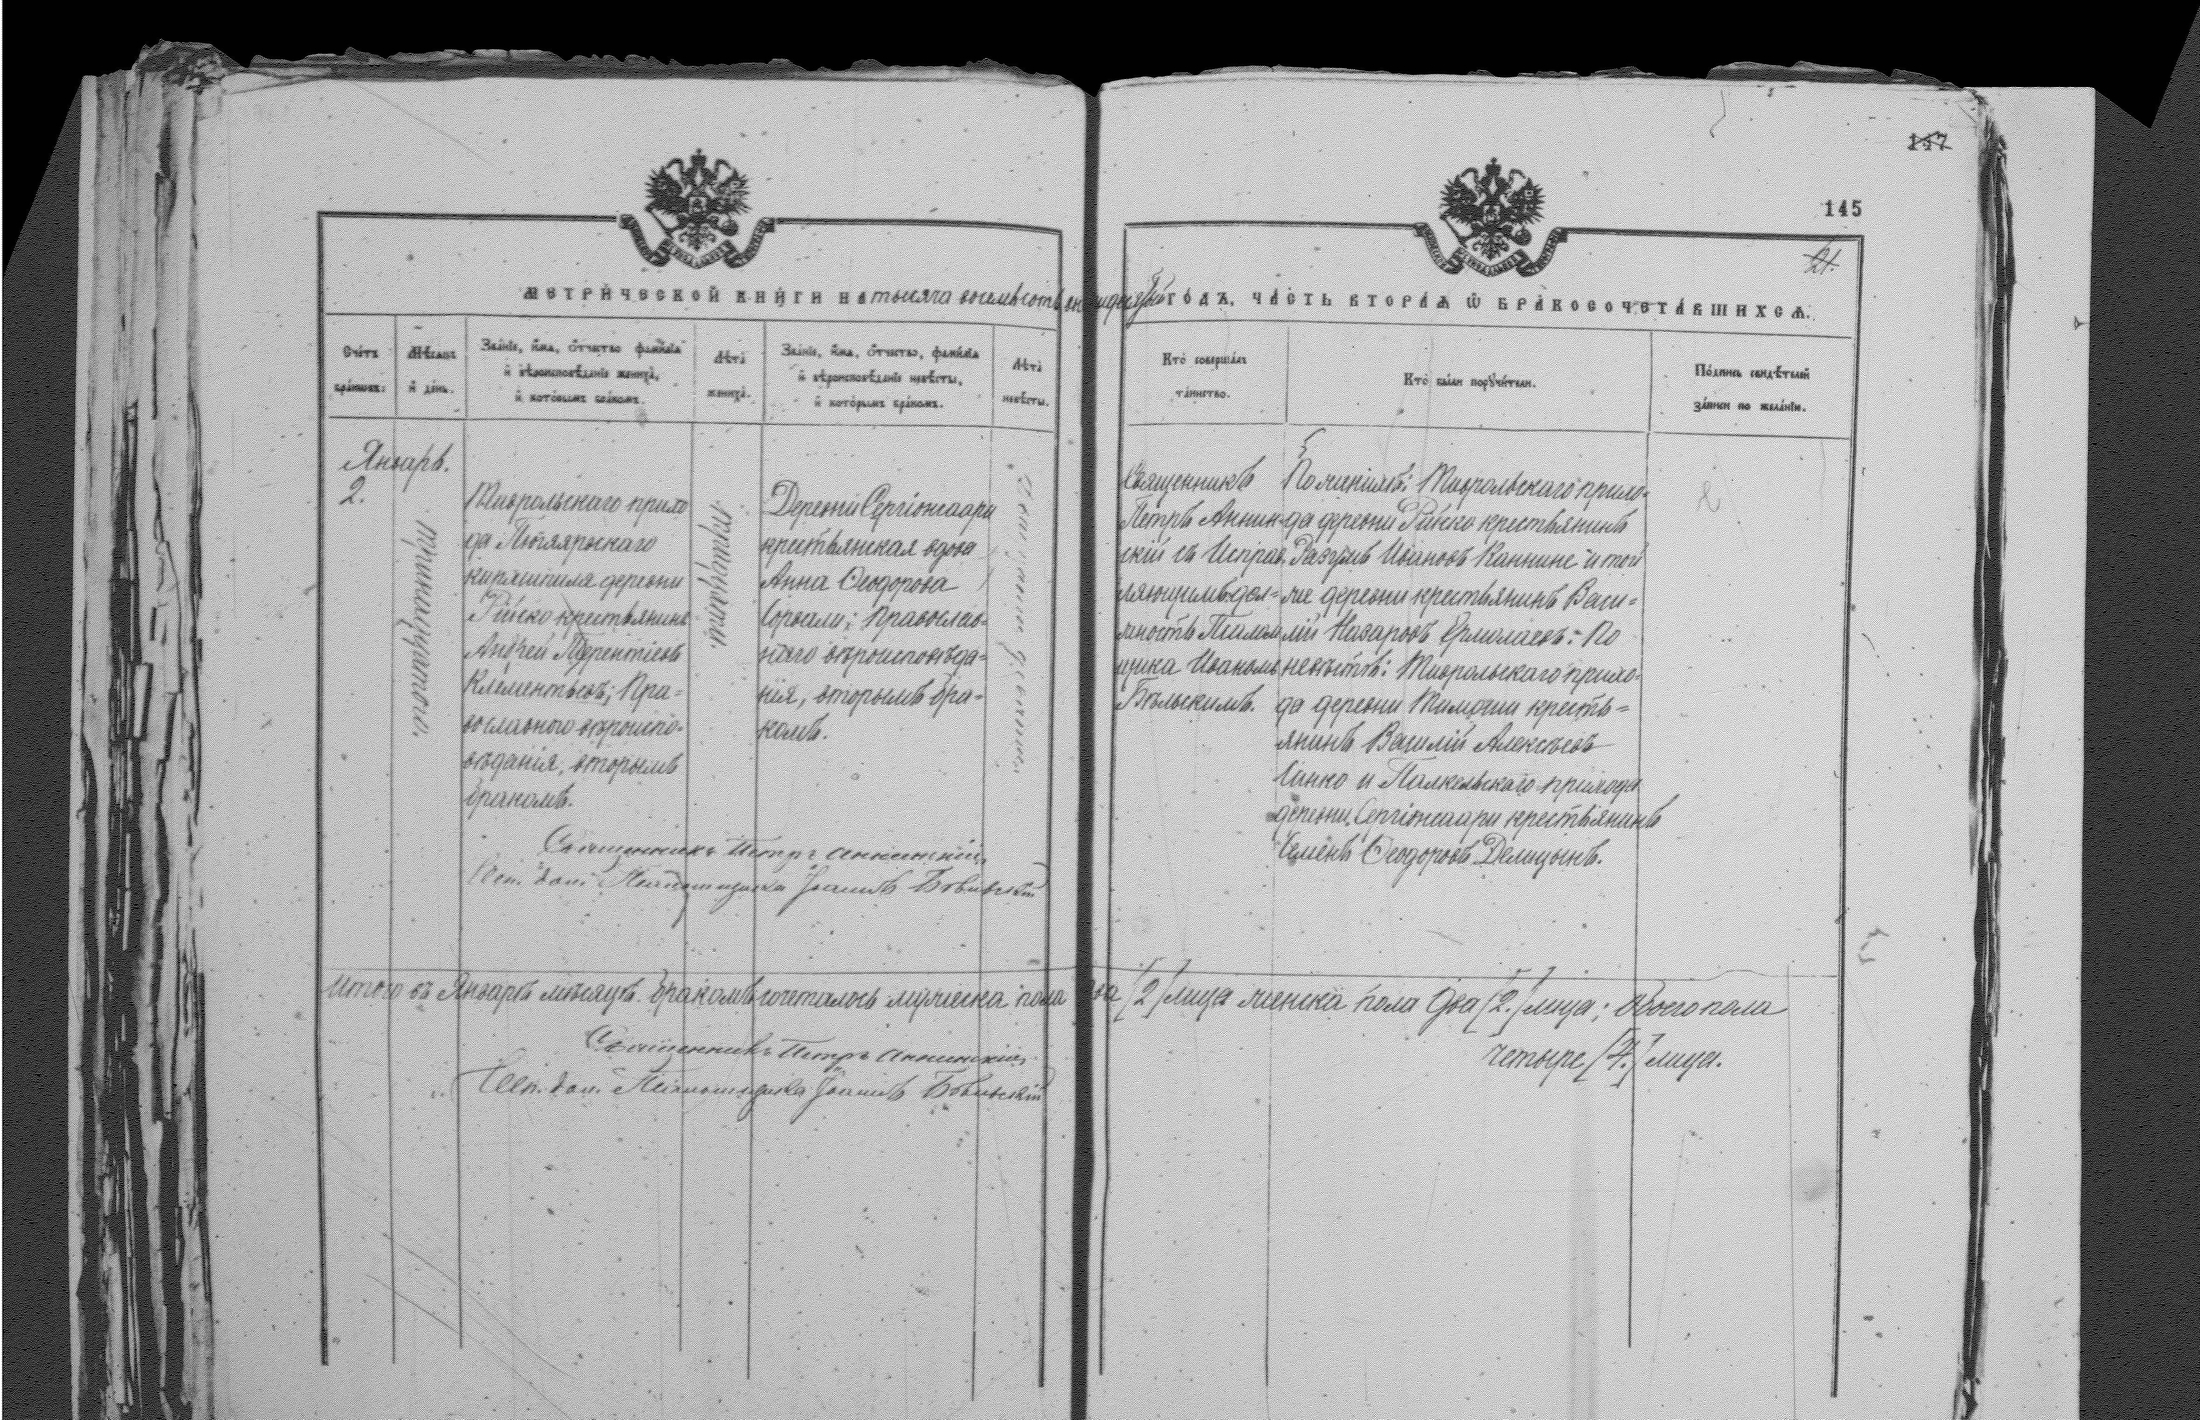 147
145
21.
МЕТРИЧЕСКОЙ КНИГИ НА тысяча восемьсотъ ГОДЪ, ЧАСТЬ ВТОРАЯ Ѿ БРАКОСОЧЕТАВШИХСЯ.
Счетъ браковъ.
Мѣсяцъ и день.
Званіе, имя, отчество, фамилія
и вѣроисповѣданіе жениха,
и которымъ бракомъ.
Лѣта
жениха.
Званіе, имя, отчество, фамилія
и вѣроисповѣданіе невѣсты,
и которымъ бракомъ.
Лѣта
невѣсты.
Кто совершалъ
таинство.
Кто были поручители.
Подпись свидѣтелей
записи по желанію.
Январь.
2.
тринадцатого.
Тиврольскаго прихо
да
кирхшпиля деревни
Рійско крестьянинъ
Андрей Терентіевъ
Клементьевъ; Пра-
вославного вѣроиспо-
вѣданія, вторымъ
бракомъ.
тридцать.
Деревни Сергіонсаари
крестьянская вдова
Анна Ѳеодорова
Сорвали; Православ-
наго вѣроисповѣда-
нія, вторымъ бра-
комъ.
Священникъ
Петръ Аннин-
скій съ Исправ.
ляющимъ дол-
жность Псалом
щика Иваномъ
Бѣльскимъ.
По женихѣ: Тиврольскаго прихо-
да деревни Рійско крестьянинъ
Ивановъ Каннине и той
же деревни крестьянинъ Васи-
лій Назаровъ Ермолаевъ:- По
невѣстѣ: Тиврольскаго прихо-
да деревни крестъ-
янинъ Василій Алексѣевъ
Синко и Палкельскаго прихода
деревни Сергіонсаари крестьянинъ
Семенъ Ѳеодоровъ Дельцынъ.
2
Священникъ Петръ Аннинскій
Исп. дол. Псаломщика Іоаннъ Бѣльскій
Итого въ Январѣ мѣсяцѣ бракомъ сочеталось мужеска пола два [2] лица женска пола два [2.] лица; Обоего пола
четыре [4.] лица.
Священникъ Петръ Аннинскій
Исп. дол. Псаломщика Іоаннъ Бѣльскій